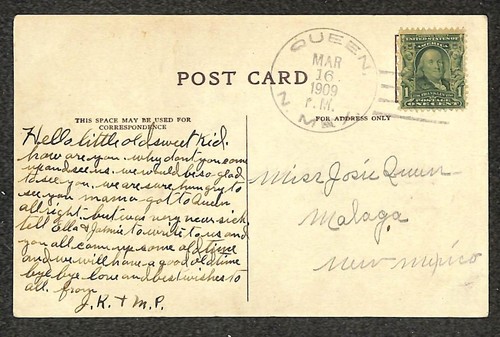 POST CARD
QUEEN,
MAR
16
1909
P.M.
N. MEX.
UNITED STATES OF AMERICA
1 1
POSTAGE
ONE CENT
THIS SPACE MAY BE USED FOR
CORRESPONDENCE
FOR ADDRESS ONLY
Hello little old sweet kid.
how are you. why dont you come
up and see us. we would be so glad
to see you. we are sure hungry to
see you. mama got to Queen
all right. but was very near sick
tell Ella & Jamie to write to us and
you all come up some old time
and we will have a good old time
bye bye. love and best wishes to
all. from
J.K. + M.P.
Miss Josie Queen
Malaga
New Mexico